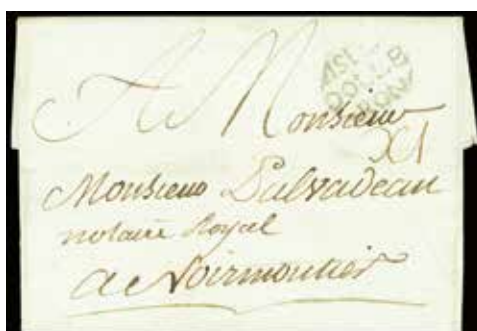 A Monsieur
Monsieur Palvadeau
notaire Royal
a Noirmoutier